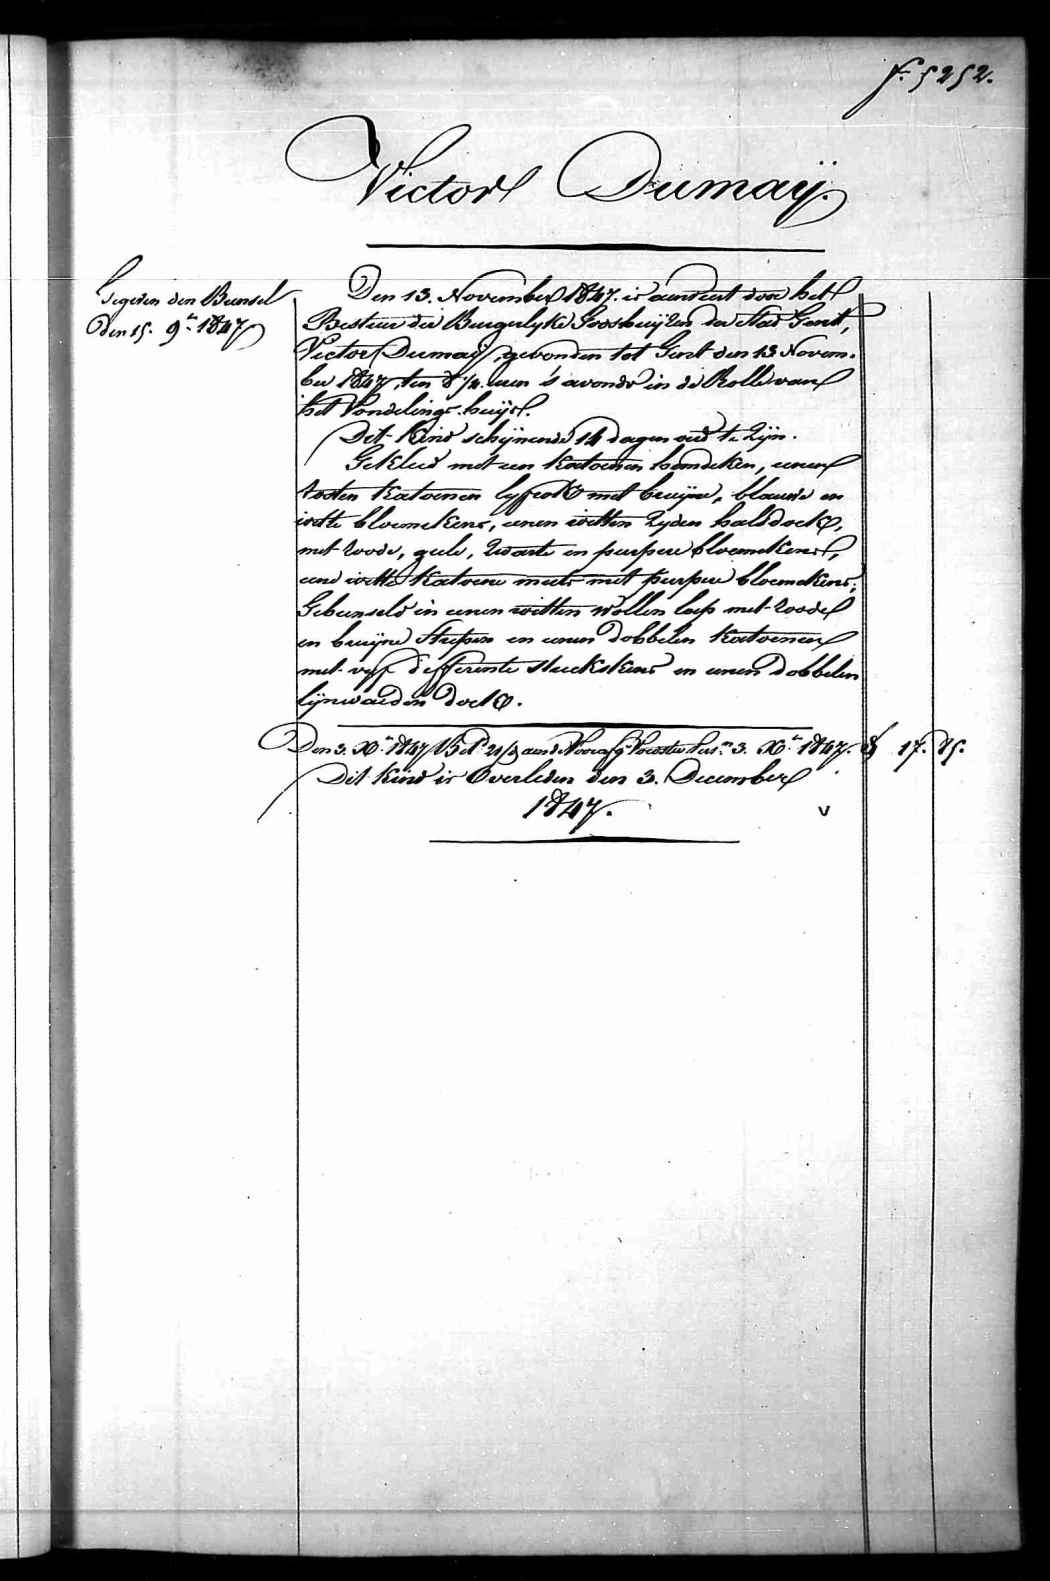 f. 5252.
Victor Dumaÿ.
Gegeven den Bunsel
den 15. 9.ᵉʳ 1847
Den 13. November 1847. is aenveert door het
Bestuer der Burgerlyke Godshuyzen der Stad Gent,
Victor Dumaÿ, gevonden tot Gent den 13 Novem-
ber 1847, ten 8 ½ uren 's avonds in de Rolle van
het Vondelings-huijs.
Dit Kind schijnende 14 dagen oud te Zijn.
Gekleed met een Katoenen hemdeken, eenen
Katoenen lyfrok met bruijne, blauwe en
witte bloemekens, eenen witten Zyden halsdoek,
met Roode, geele, Zwarte en purpere bloemekens,
eene witte Katoene muts met purpere bloemekens;
Gebunseld in eenen witten Wollen lap met Roode
en bruijne Strepen en eenen dobbelen Katoenen
met vyf differente stuckskens en eenen dobbelen
lijnwaeden doek.
Den 3. Xᵉʳ 1847 Betˡᵈ 21/3 aen de 3. Xᵉʳ 1847. 17. 85.
Dit Kind is Overleden den 3. December
1847.
v